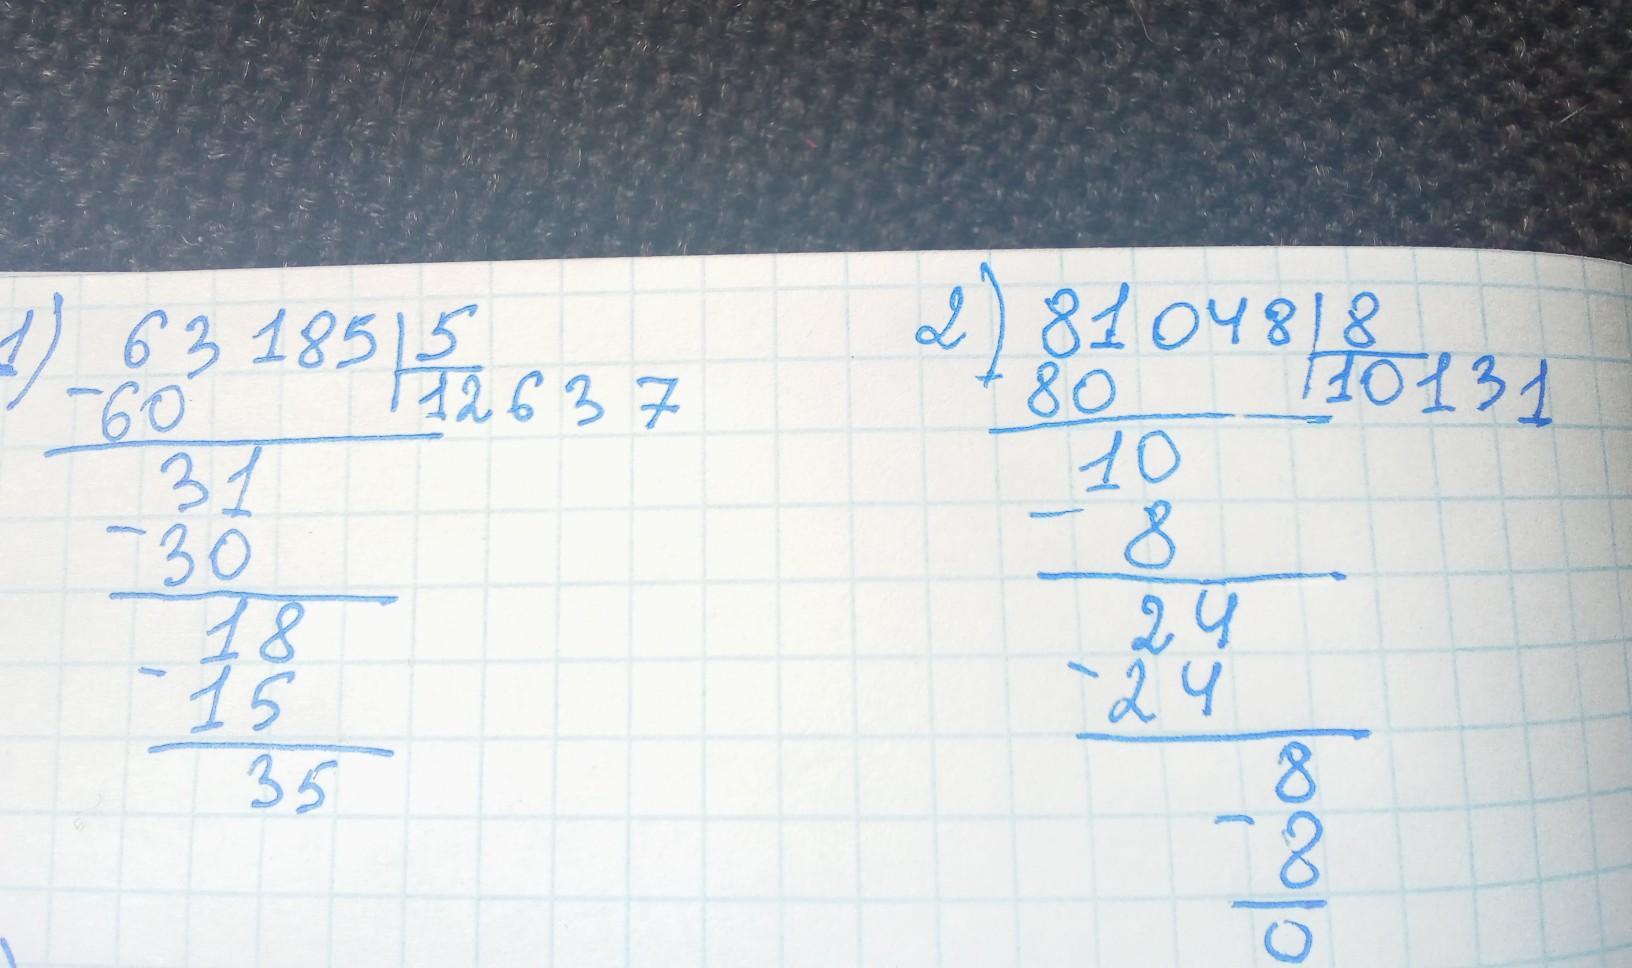 1) 63 185 5
-60 12637
31
-30
18
-15
35
2) 81 048 8
-80 10131
10
- 8
24
-24
8
- 8
0